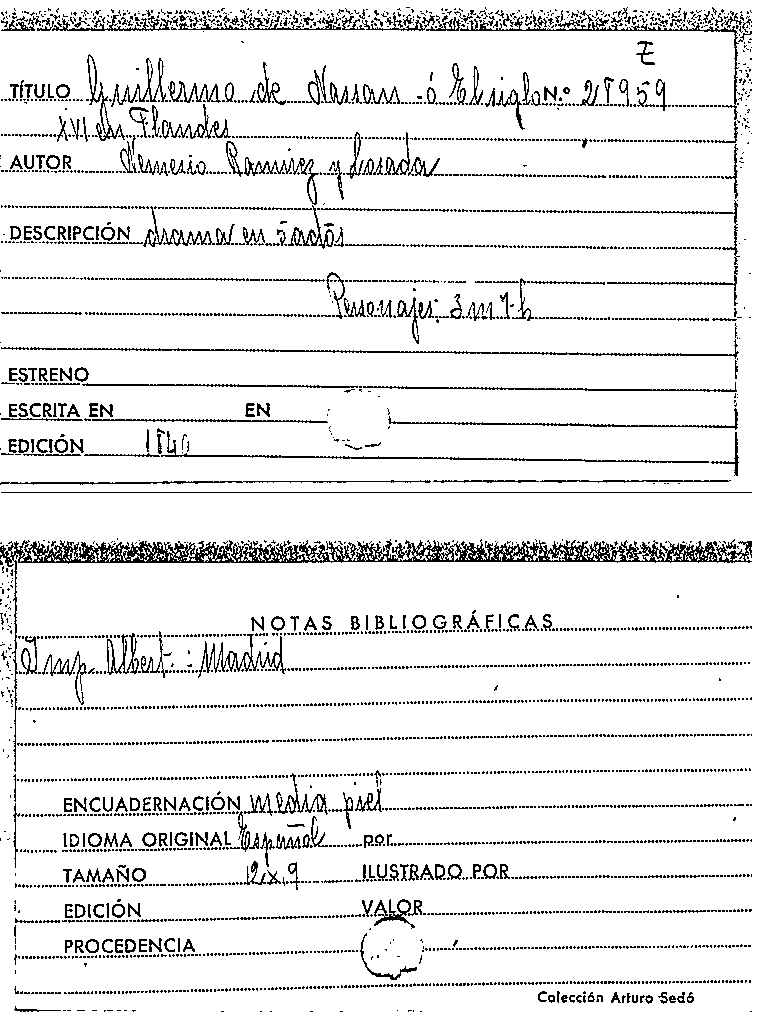 Z
TÍTULO Guillermo de Nassau - ó El siglo N.º 28959
XVI en Flandes
AUTOR Nemesio Ramirez y Losada
DESCRIPCIÓN drama en 5 actos
Personajes: 3 m 7 h
ESTRENO
ESCRITA EN EN
EDICIÓN 1840
NOTAS BIBLIOGRÁFICAS
Imp. Albert. : Madrid
ENCUADERNACIÓN media piel
IDIOMA ORIGINAL Español por
TAMAÑO 12 x 9 ILUSTRADO POR
EDICIÓN VALOR
PROCEDENCIA
Colección Arturo Sedó